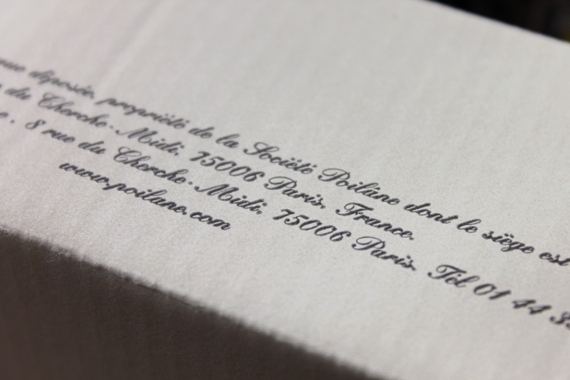 déposée, propriété de la Société Poilâne dont le siège est
du Cherche-Midi, 75006 Paris, France.
8 rue du Cherche-Midi, 75006 Paris. Tél 01 44 3
www.poilane.com